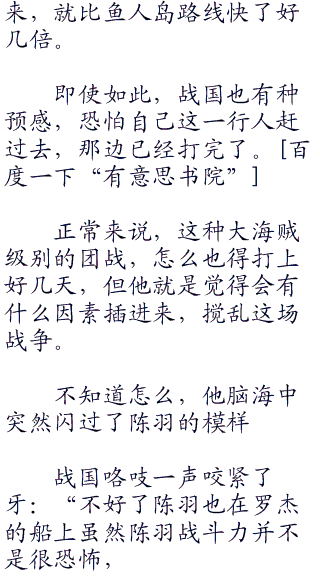 来，就比鱼人岛路线快了好
几倍。
即使如此，战国也有种
预感，恐怕自己这一行人赶
过去，那边已经打完了。[百
度一下“有意思书院”]
正常来说，这种大海贼
级别的团战，怎么也得打上
好几天，但他就是觉得会有
什么因素插进来，搅乱这场
战争。
不知道怎么，他脑海中
突然闪过了陈羽的模样
战国咯吱一声咬紧了
牙：“不好了陈羽也在罗杰
的船上虽然陈羽战斗力并不
是很恐怖，